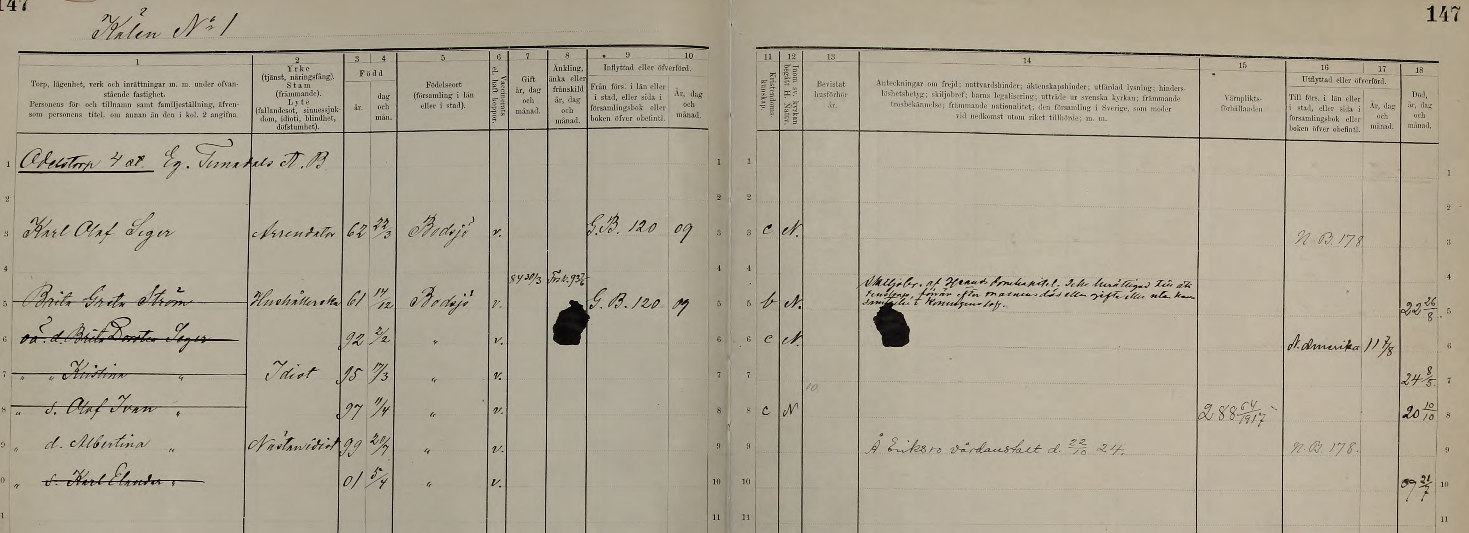 147
Kälen No 1
147
1
Torp, lägenhet, verk och inrättningar m. m. under ofvanstående fastighet.
Personens för- och tillnamn samt familjeställning, äfvensom personens titel, om annan än den i kol. 2 angifna.
2
Yrke
(tjänst, näringsfång).
Stam
(främmande).
Lyte
(fallandesot, sinnessjukdom, idioti, blindhet, döfstumhet).
3 4
Född
år.
dag och mån.
5
Födelseort
(församling i län eller i stad).
6
Vaccinerade el. haft koppor.
7
Gift
år, dag och månad.
8
Änkling, änka eller frånskild år, dag och månad.
9 10
Inflyttad eller öfverförd.
Från förs. i län eller i stad, eller sida i församlingsbok eller boken öfver obefintl.
År, dag och månad.
11
Kristendomskunskap.
12
Inom sv. kyrkan begått H. Nattv.
13
Bevistat husförhör år.
14
Anteckningar om frejd; nattvardshinder; äktenskapshinder; utfärdad lysning; hinderslöshetsbetyg; skiljobref; barns legalisering; utträde ur svenska kyrkan; främmande trosbekännelse; främmande nationalitet; den församling i Sverige, som meder vid nedkomst utom riket tillhörde; m. m.
15
Värnpliktsförhållanden
16 17
Utflyttad eller öfverförd.
Till förs. i län eller i stad, eller sida i församlingsbok eller boken öfver obefintl.
År, dag och månad.
18
Död, år, dag och månad.
1 Odelstorp 4 Eg. A. B 1 1 1
2 2 2 2
3 Karl Olaf Seger Arrendator 62 22/3 Bodsjö v. G.B. 120 09 3 3 c N. N. B. 178 3
4 84 30/3 4 4 4
5 Brita Greta Ström Hushållerska 61 14/12 Bodsjö v. G. B. 120 09 5 5 b N. 22 26/8 5
6 oä. d. Brita Dorotea Seger 92 2/2 " v. 6 6 c N. N. Amerika 11 7/8 6
7 " " Kristina " Idiot 95 17/3 " v. 7 7 10 24 8/5 7
8 " s. Olaf Ivan " 97 11/4 " v. 8 8 c N 288 64/1917 20 10/10 8
9 " d. Albertina " Nästan idiot 99 20/7 " v. 9 9 Å Eriksro vårdanstalt d. 22/10 24. N. B. 178. 9
10 " s. Karl " 01 5/4 " v. 10 10 09 21/7 10
11 11 11 11